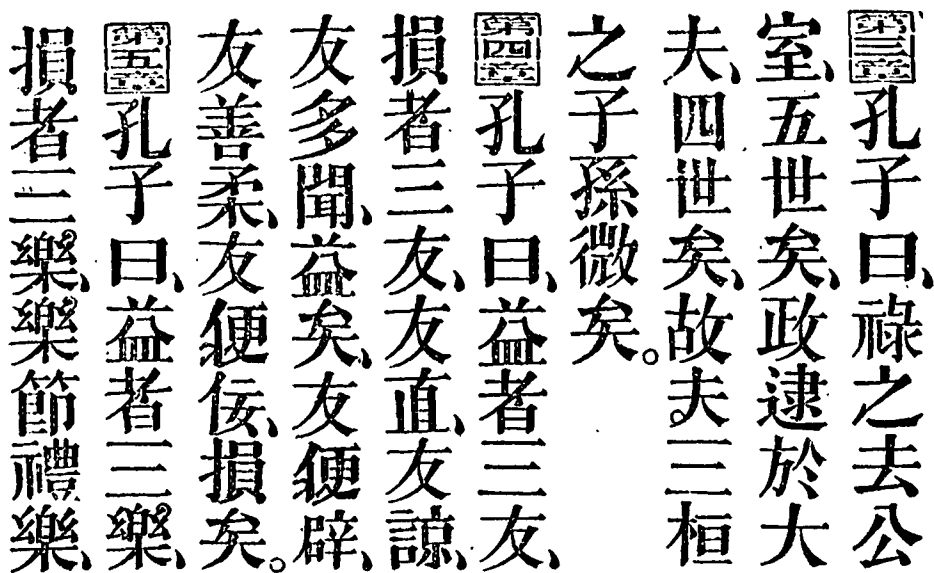 第三章孔子曰、祿之去公
室、五世矣、政逮於大
夫、四世矣、故夫三桓
之子孫微矣。
第四章孔子曰、益者三友、
損者三友、友直、友諒、
友多聞、益矣、友便辟、
友善柔、友便佞、損矣。
第五章孔子曰、益者三樂、
損者三樂、樂節禮樂、